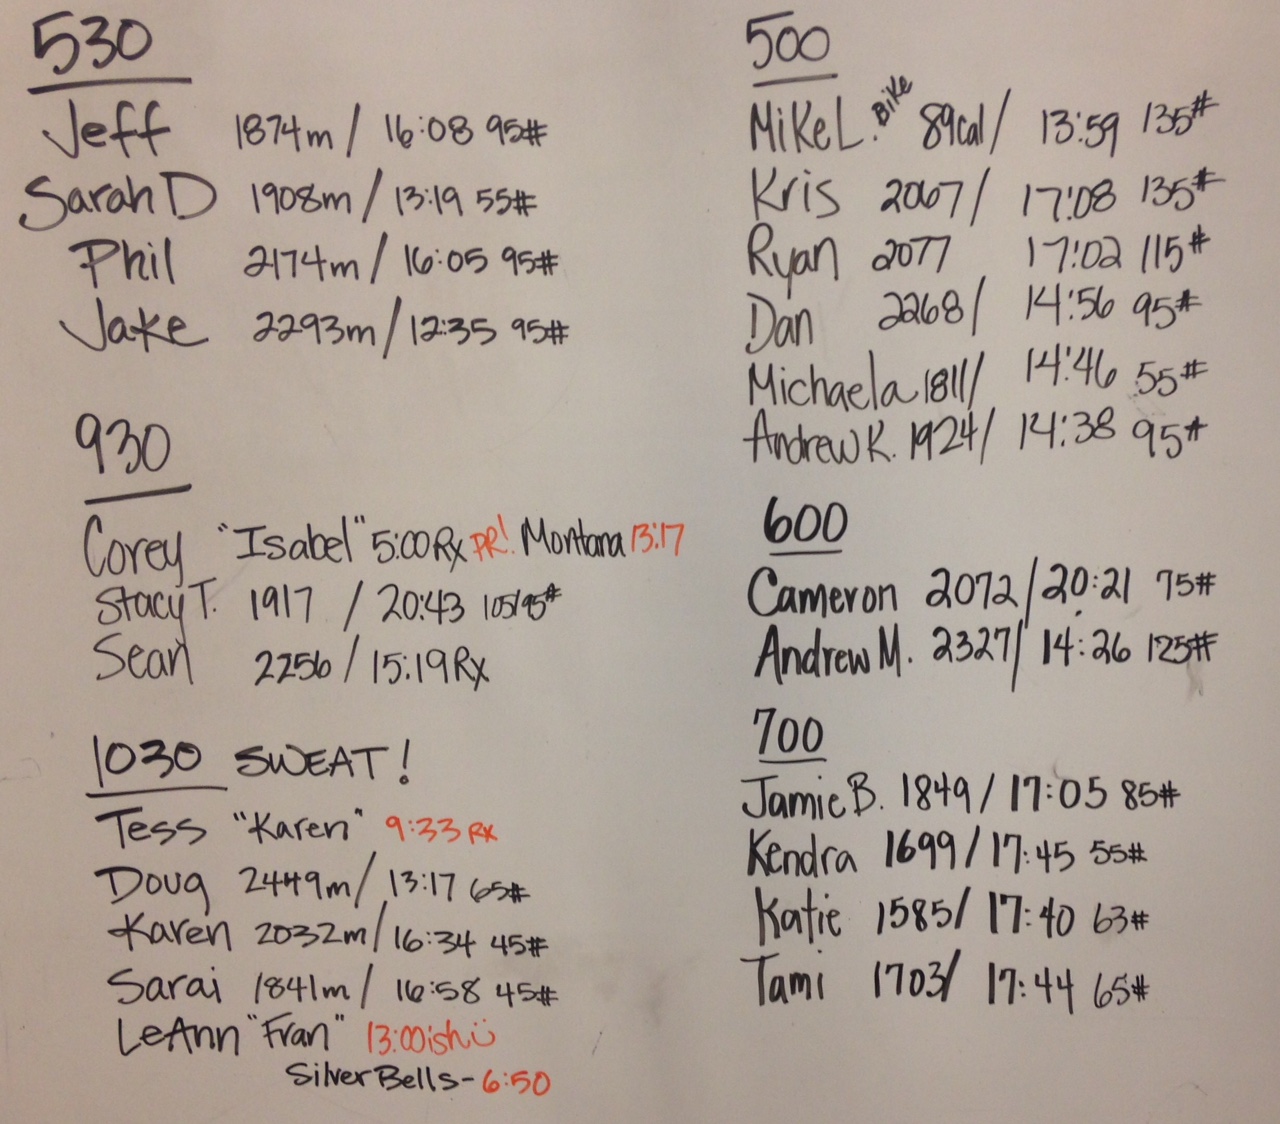 530
Jeff 1874m / 16:08 95#
Sarah D 1908m / 13:19 55#
Phil 2174m / 16:05 95#
Jake 2293m / 12:35 95#
930
Corey "Isabel" 5:00 Rx PR! Montana 13:17
Stacy T. 1917 / 20:43 105/95#
Sean 2256 / 15:19 Rx
1030 SWEAT!
Tess "Karen" 9:33 Rx
Doug 2449m / 13:17 65#
Karen 2032m / 16:34 45#
Sarai 1841m / 16:58 45#
LeAnn "Fran" 13:00ish
Silver Bells - 6:50
500
Mike L. Bike 89cal / 13:59 135#
Kris 2067 / 17:08 135#
Ryan 2077 17:02 115#
Dan 2268 / 14:56 95#
Michaela 1811 / 14:46 55#
Andrew K. 1924 / 14:38 95#
600
Cameron 2072 / 20:21 75#
Andrew M. 2327 / 14:26 125#
700
Jamie B. 1849 / 17:05 85#
Kendra 1699 / 17:45 55#
Katie 1585 / 17:40 63#
Tami 1703 / 17:44 65#